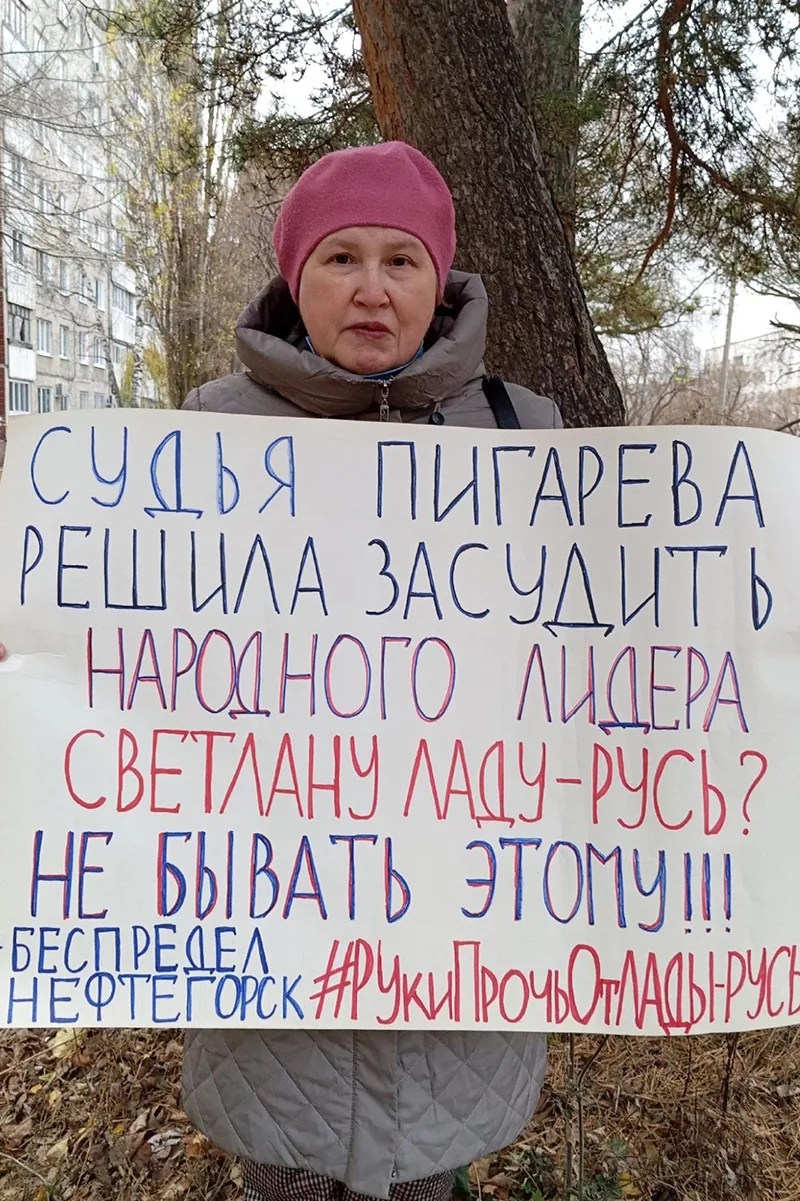 СУДЬЯ ПИГАРЕВА
РЕШИЛА ЗАСУДИТЬ
НАРОДНОГО ЛИДЕРА
СВЕТЛАНУ ЛАДУ-РУСЬ?
НЕ БЫВАТЬ ЭТОМУ!!!
#БЕСПРЕДЕЛ
НЕФТЕГОРСК #РукиПрочьОтЛАДЫ-РУСЬ